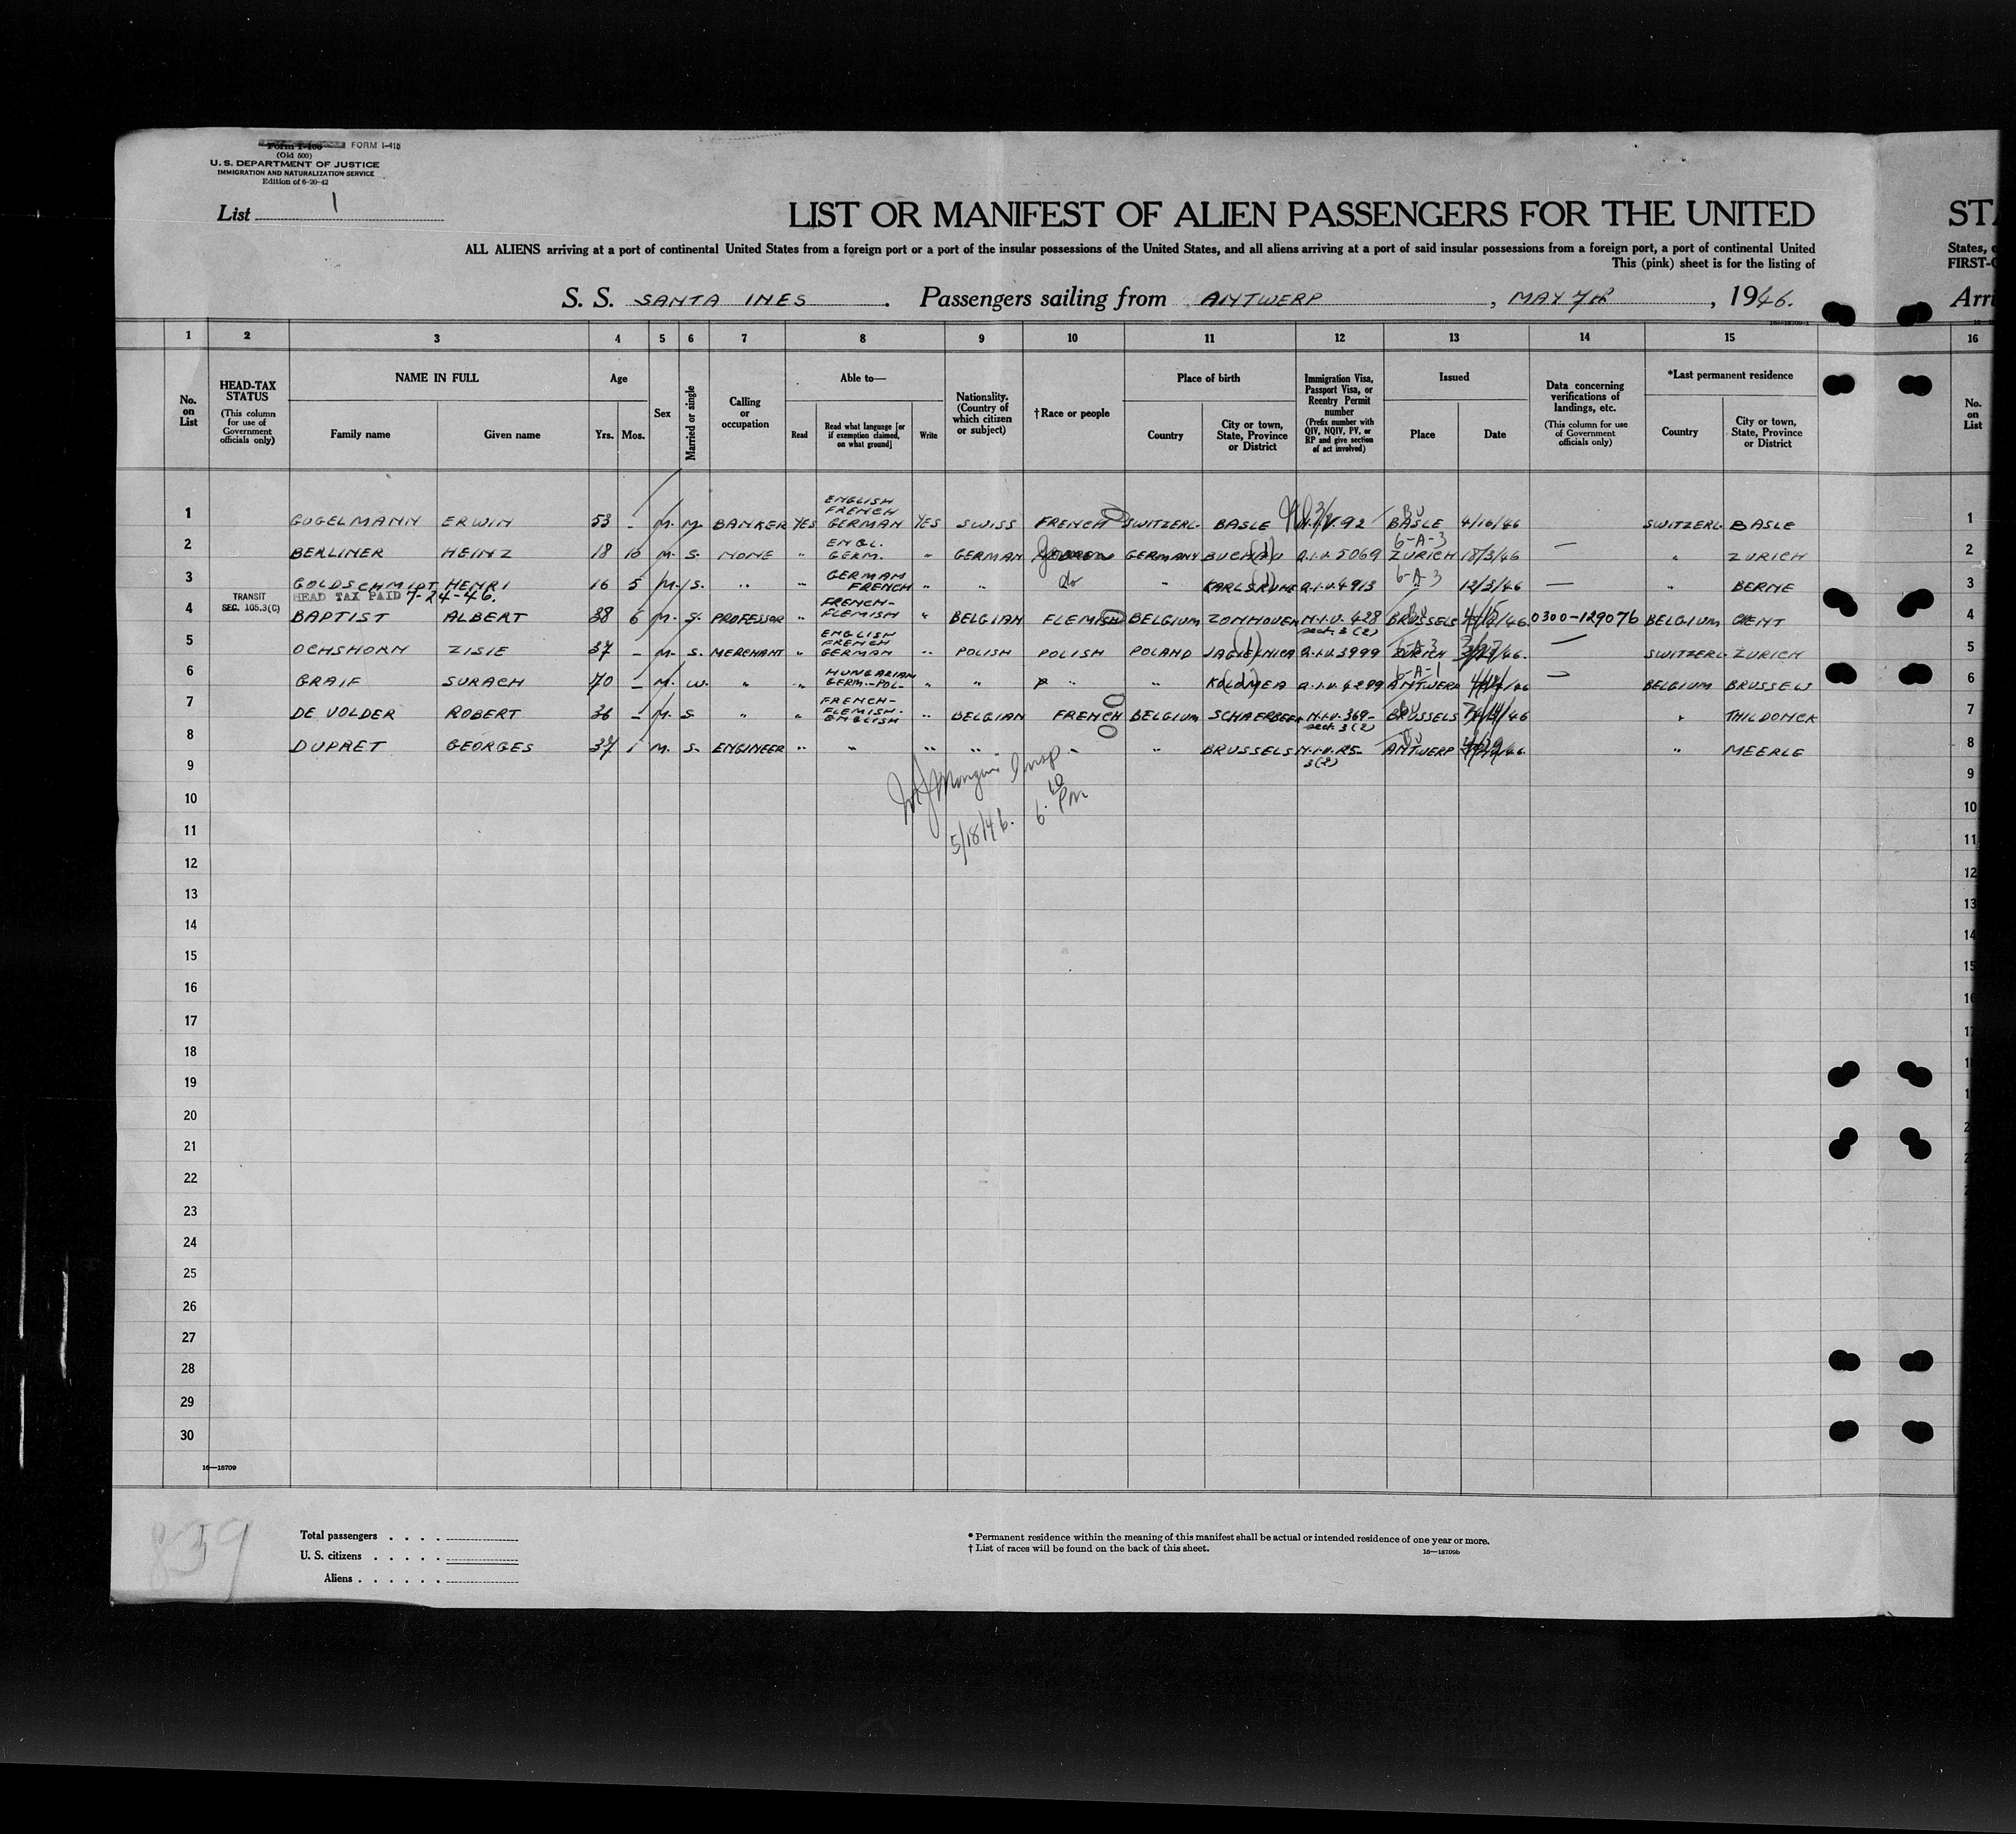 Form I-100 FORM I-415
(Old 500)
U. S. DEPARTMENT OF JUSTICE
IMMIGRATION AND NATURALIZATION SERVICE
Edition of 6-20-42
List 1
LIST OR MANIFEST OF ALIEN PASSENGERS FOR THE UNITED
ALL ALIENS arriving at a port of continental United States from a foreign port or a port of the insular possessions of the United States, and all aliens arriving at a port of said insular possessions from a foreign port, a port of continental United
This (pink) sheet is for the listing of
S. S. SANTA INES. Passengers sailing from ANTWERP, MAY 7th, 1946.
1 2 3 4 5 6 7 8 9 10 11 12 13 14 15 16
No. on List
HEAD-TAX STATUS (This column for use of Government officials only)
NAME IN FULL Family name Given name
Age Yrs. Mos.
Sex
Married or single
Calling or occupation
Able to— Read Read what language [or if exemption claimed, on what ground] Write
Nationality. (Country of which citizen or subject)
†Race or people
Place of birth Country City or town, State, Province or District
Immigration Visa, Passport Visa, or Reentry Permit number (Prefix number with QIV, NQIV, PV, or RP and give section of act involved)
Issued Place Date
Data concerning verifications of landings, etc. (This column for use of Government officials only)
*Last permanent residence Country City or town, State, Province or District
No. on List
1 GUGELMANN ERWIN 53 - M. M. BANKER YES ENGLISH FRENCH GERMAN YES SWISS FRENCH SWITZERL. BASLE 92 BASLE 4/10/46 SWITZERL. BASLE 1
2 BERLINER HEINZ 18 10 M. S. NONE " ENGL. GERM. " GERMAN German GERMANY BUCHAU Q.I.V. 5069 6-A-3 ZURICH 18/3/46 — " ZURICH 2
3 GOLDSCHMIDT HENRI 16 5 M. S. " " GERMAN FRENCH " " do " KARLSRUHE Q.I.V. 4913 6-A-3 " 12/3/46 — " BERNE 3
TRANSIT SEC. 105.3(C) HEAD TAX PAID 7-24-46.
4 BAPTIST ALBERT 38 6 M. S. PROFESSOR " FRENCH-FLEMISH " BELGIAN FLEMISH BELGIUM ZONHOVEN N.I.V. 428 sect. 3 (2) BRUSSELS 46 0300-129076 BELGIUM GENT 4
5 OCHSHORN ZISIE 37 - M. S. MERCHANT " ENGLISH FRENCH GERMAN " POLISH POLISH POLAND JAGIELNICA Q.I.V. 3999 6-A-3 ZURICH 46. — SWITZERL. ZURICH 5
6 GRAIF SURACH 70 - M. W. " " HUNGARIAN GERM.-POL- " " " " KOLOMEA Q.I.V. 4299 6-A-1 ANTWERP 46 — BELGIUM BRUSSELS 6
7 DE VOLDER ROBERT 36 - M. S " " FRENCH-FLEMISH-ENGLISH " BELGIAN FRENCH BELGIUM SCHAERBEEK N.I.V. 369- sect. 3 (2) BRUSSELS 46 " THILDONCK 7
8 DUPRET GEORGES 37 1 M. S. ENGINEER " " " " " BRUSSELS N.I.V. R5- 3(2) ANTWERP 46. " MEERLE 8
9 Insp. 9
10 5/18/46. 6.10 PM 10
11 11
12 12
13 13
14 14
15 15
16 16
17
18
19
20
21
22
23
24
25
26
27
28
29
30
16—18709
859
Total passengers . . . .
U. S. citizens . . . . .
Aliens . . . . . .
* Permanent residence within the meaning of this manifest shall be actual or intended residence of one year or more.
† List of races will be found on the back of this sheet. 16—18709b